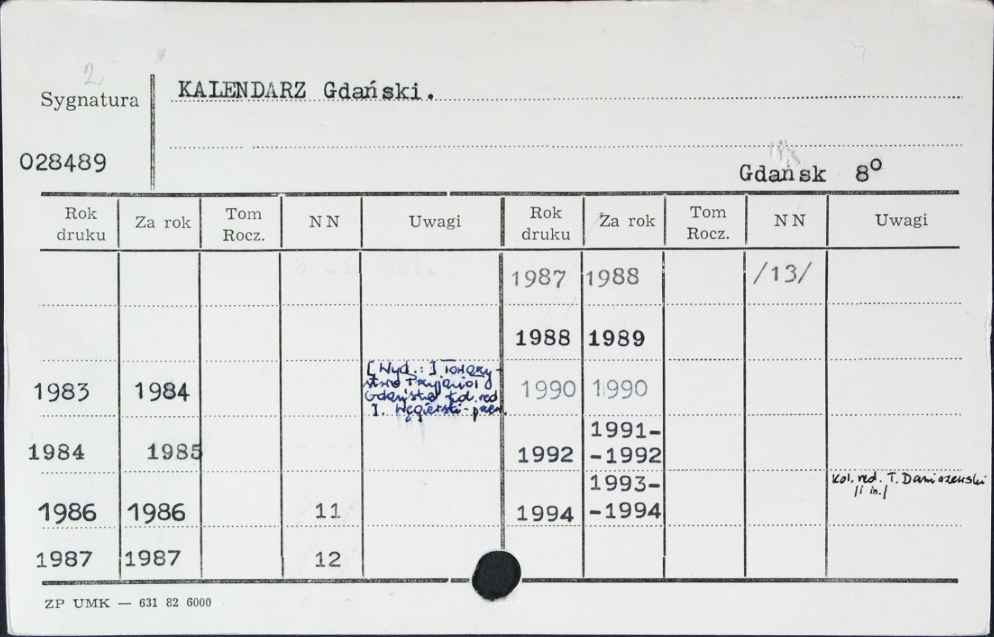 2
Sygnatura
KALENDARZ Gdański.
028489
Gdańsk 8°
Rok druku Za rok Tom Rocz. NN Uwagi Rok druku Za rok Tom Rocz. NN Uwagi
1987 1988 /13/
1988 1989
1983 1984
[Wyd.:] Towarzy-
stwo Przyjaciół
Gdańska Kol. red
J. Węgierski-przew.
1990 1990
1984 1985
1992 1991-
-1992
1986 1986 11
1994 1993-
-1994
Kol. red. T.
/i in./
1987 1987 12
ZP UMK — 631 82 6000